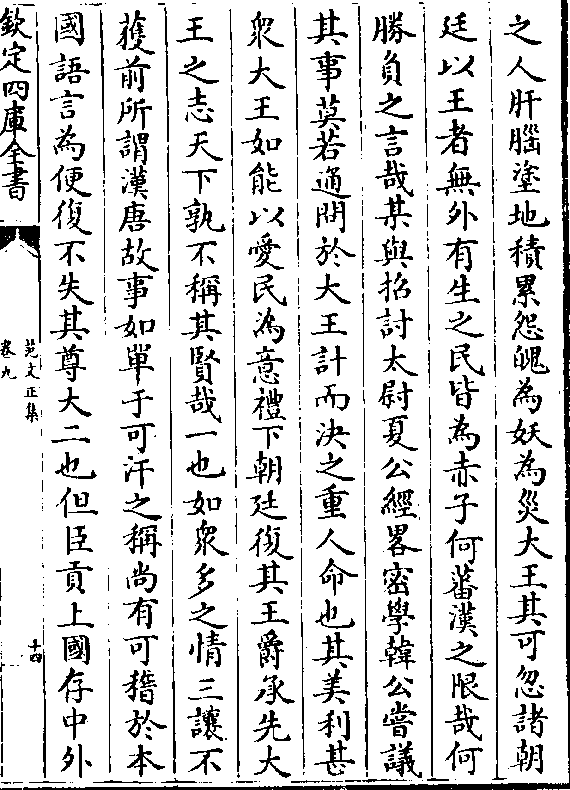 之人肝腦塗地積累怨魄為妖為災大王其可忽諸朝
廷以王者無外有生之民皆為赤子何蕃漢之限哉何
勝負之言哉某與招討太尉夏公經畧密學韓公嘗議
其事莫若通問於大王計而決之重人命也其美利甚
衆大王如能以愛民為意禮下朝廷復其王爵承先大
王之志天下孰不稱其賢哉一也如衆多之情三讓不
獲前所謂漢唐故事如單于可汗之稱尚有可稽於本
國語言為便復不失其尊大二也但臣貢上國存中外
欽定四庫全書
范文正集
卷九
十四